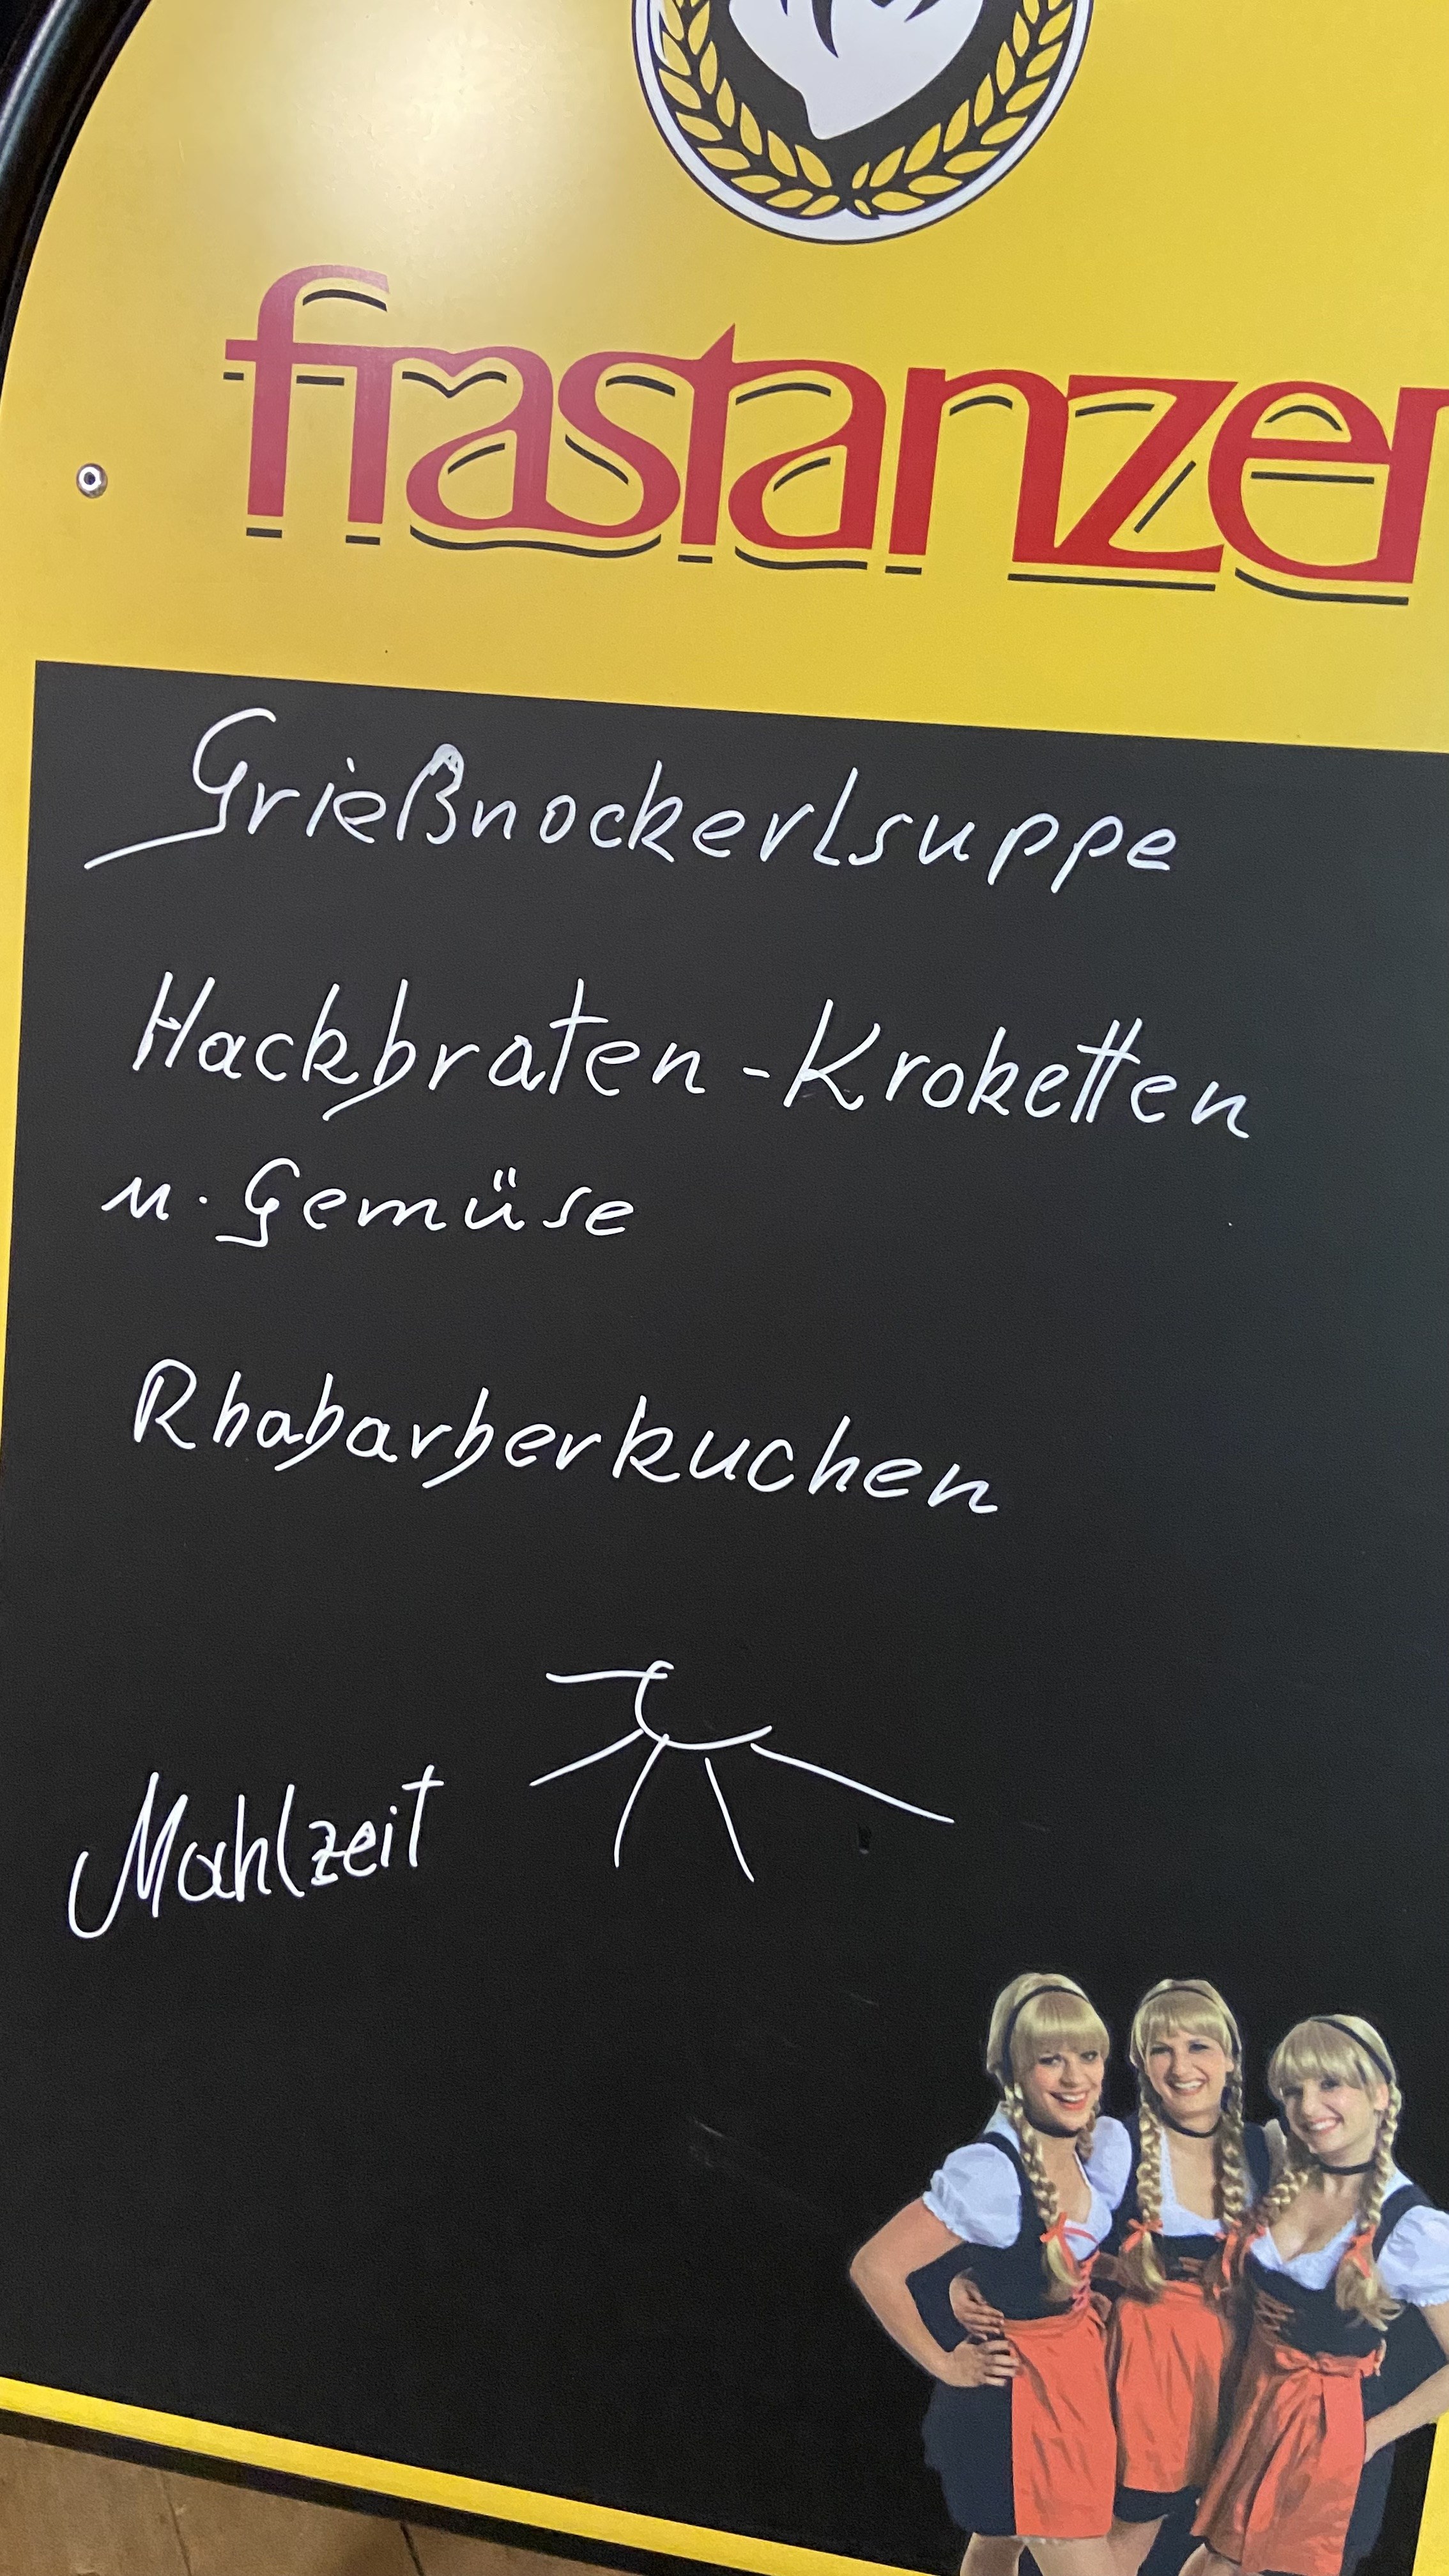 frastanzer
Grießnockerlsuppe
Hackbraten-Kroketten
u. Gemüse
Rhabarberkuchen
Mahlzeit